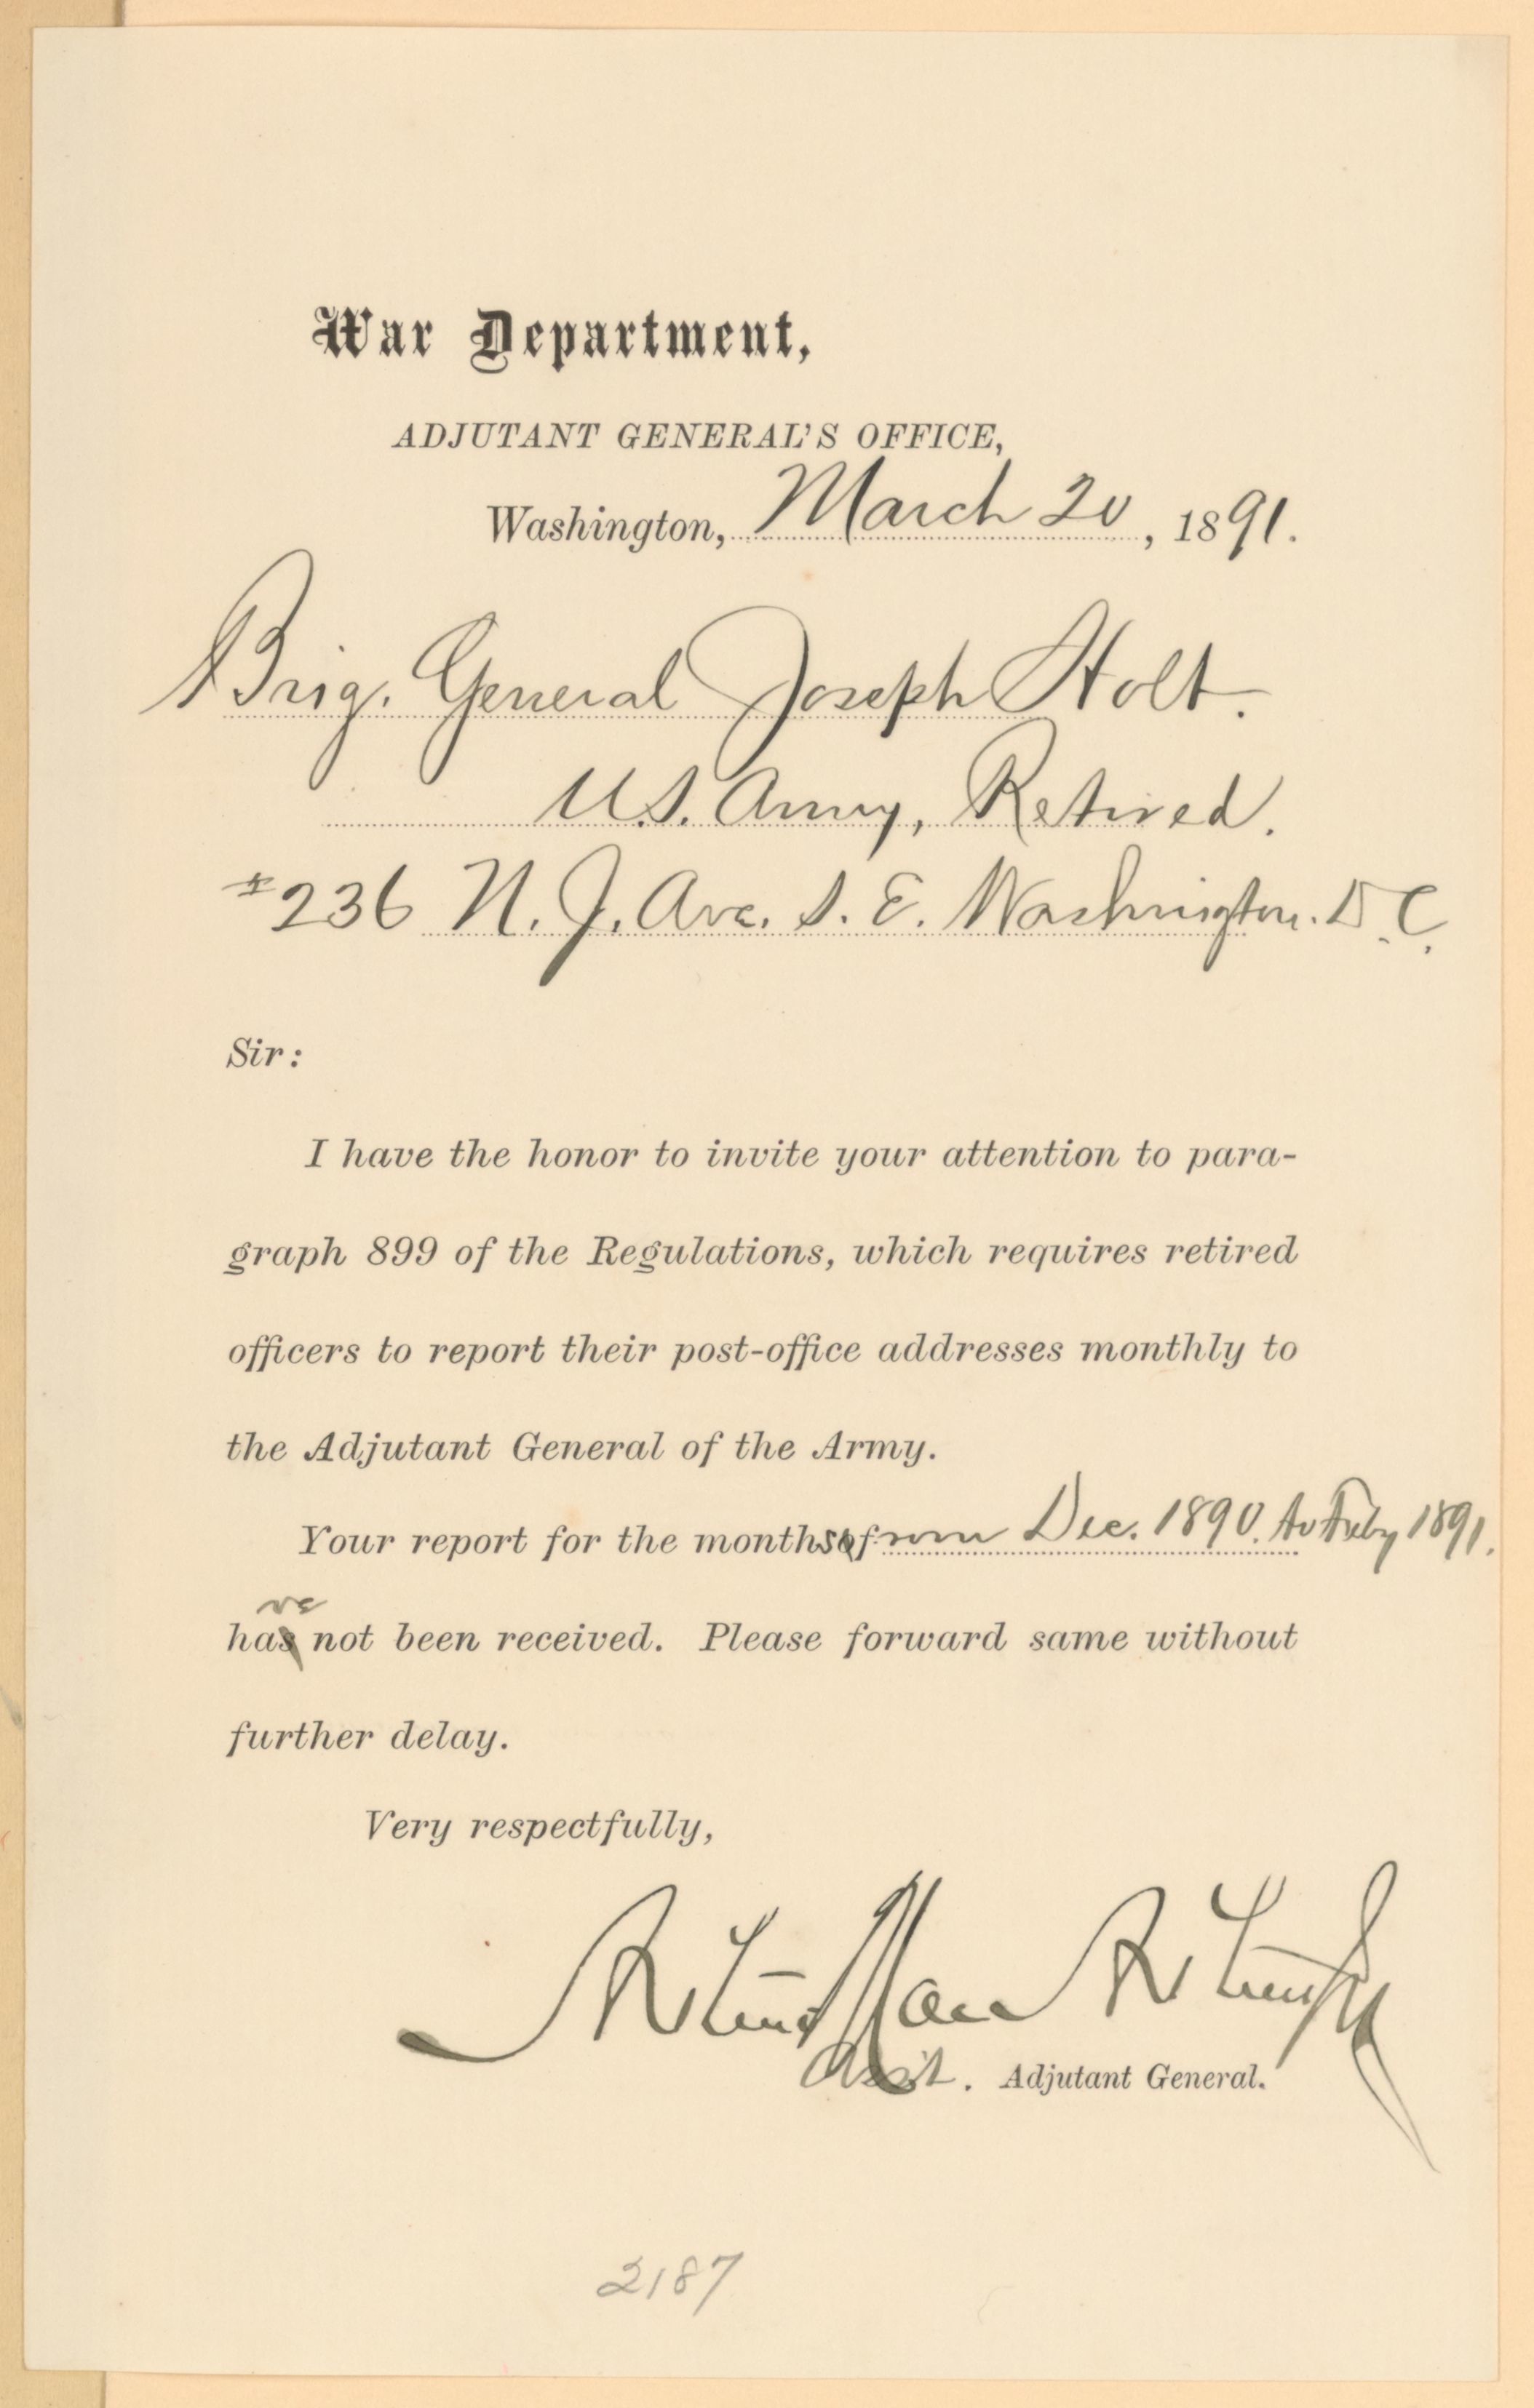 War Department,
ADJUTANT GENERAL'S OFFICE,
Washington, March 20, 1891.
Brig. General Joseph Holt.
U.S. Army, Retired.
#236 N. J. Ave. S. E. Washington. D.C.
Sir:
I have the honor to invite your attention to para-
graph 899 of the Regulations, which requires retired
officers to report their post-office addresses monthly to
the Adjutant General of the Army.
Your report for the months from Dec. 1890. to Feby 1891.
have not been received. Please forward same without
further delay.
Very respectfully,
Asst. Adjutant General.
2187